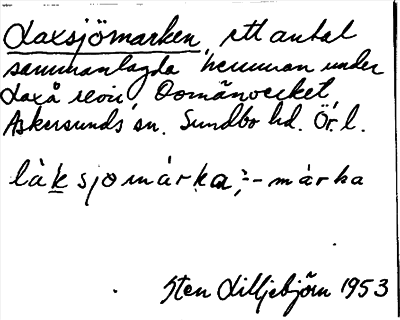 Laxsjömarken, ett antal
sammanlagda hemman under
Laxå revir, Domänverket,
Askersunds sn. Sundbo hd. Ör. l.
làksjomárka; -márka
Sten Lilljebjörn 1953